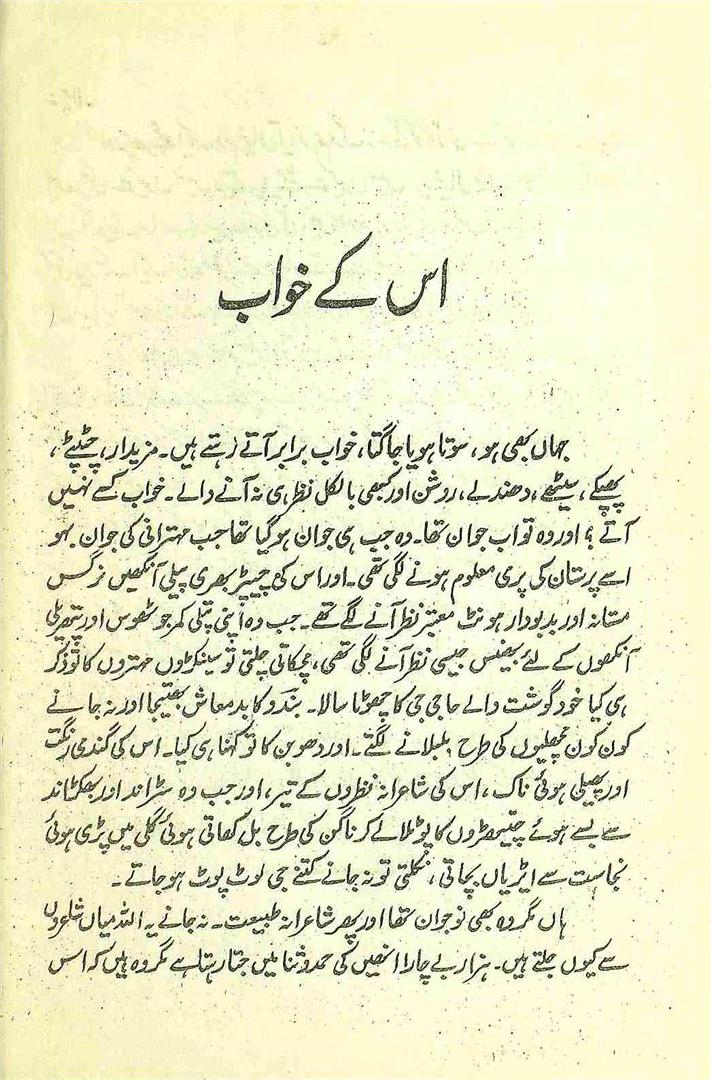 اس کے خواب
جہاں بھی ہو، سوتا ہو یا جاگتا، خواب برابر آتے رہتے ہیں۔ مزیدار، چٹپٹے،
پھیکے، سیٹھے، دھندلے، روشن اور کبھی بالکل نظر ہی نہ آنے والے۔ خواب کسے نہیں
آتے؟ اور وہ تو اب جوان تھا۔ وہ جب ہی جوان ہو گیا تھا جب مہترانی کی جوان بہو
اسے پرستان کی پری معلوم ہونے لگی تھی۔ اور اس کی چیپڑ بھری پیلی آنکھیں نرگس
مستانہ اور بدبودار ہونٹ معتبر نظر آنے لگے تھے۔ جب وہ اپنی پتلی کمر جو ٹھوس اور
آنکھوں کے لئے بھینس جیسی نظر آنے لگی تھی، مچکاتی چلتی تو سینکڑوں مہتروں کا تو ذکر
ہی کیا خود گوشت والے حاجی جی کا چھوٹا سالا۔ بندو کا بدمعاش بھتیجا اور نہ جانے
کون کون مچھلیوں کی طرح بلبلانے لگتے۔ اور دھوبن کا تو کہنا ہی کیا۔ اس کی گندمی رنگت
اور پھیلی ہوئی ناک، اس کی شاعرانہ نظروں کے تیر، اور جب وہ سڑاند اور بھکڑاند
سے بسے ہوئے چیتھڑوں کا پوٹلا لے کر ناگن کی طرح بل کھاتی ہوئی گلی میں پڑی ہوئی
نجاست سے ایڑیاں بچاتی، نکلتی تو نہ جانے کتنے جی لوٹ پوٹ ہو جاتے۔
ہاں مگر وہ بھی نوجوان تھا اور پھر شاعرانہ طبیعت۔ نہ جانے یہ اللہ میاں شاعروں
سے کیوں جلتے ہیں۔ ہزار بے چارا انھیں کی حمد و ثنا میں جتا رہتا ہے مگر وہ ہیں کہ اس